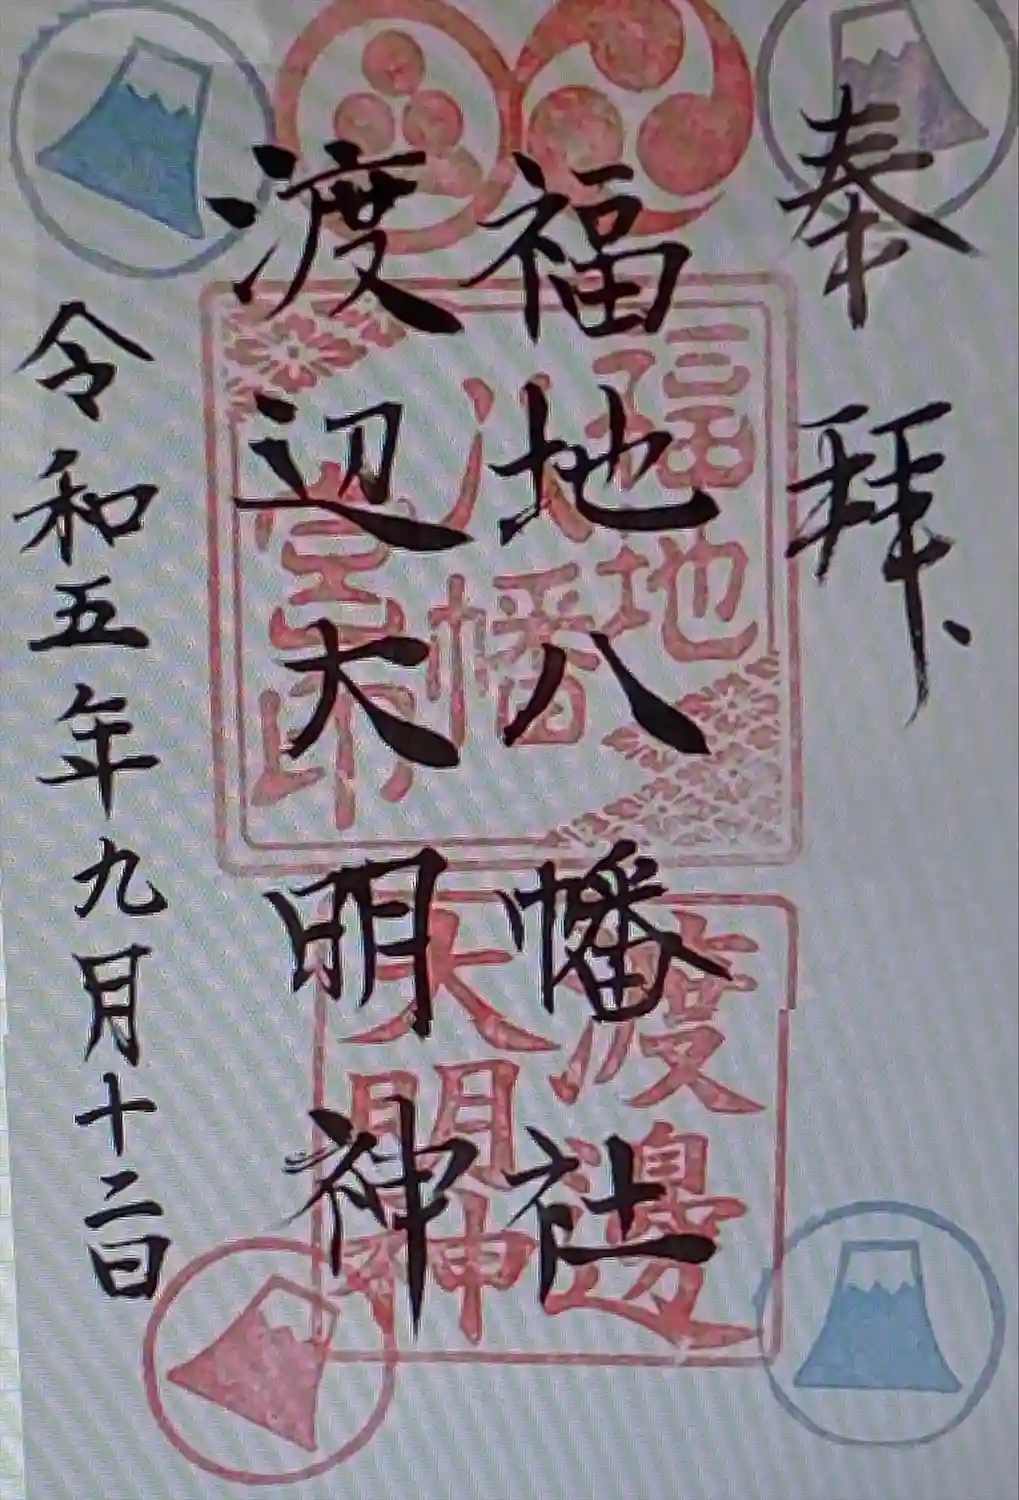 奉拝、
福地八幡社
渡辺大明神
令和五年九月十二日
福地
八幡
宮印
渡邊
大明神